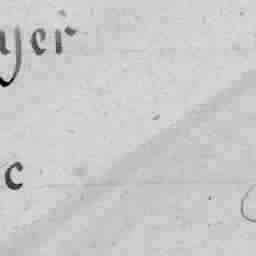 yer
c